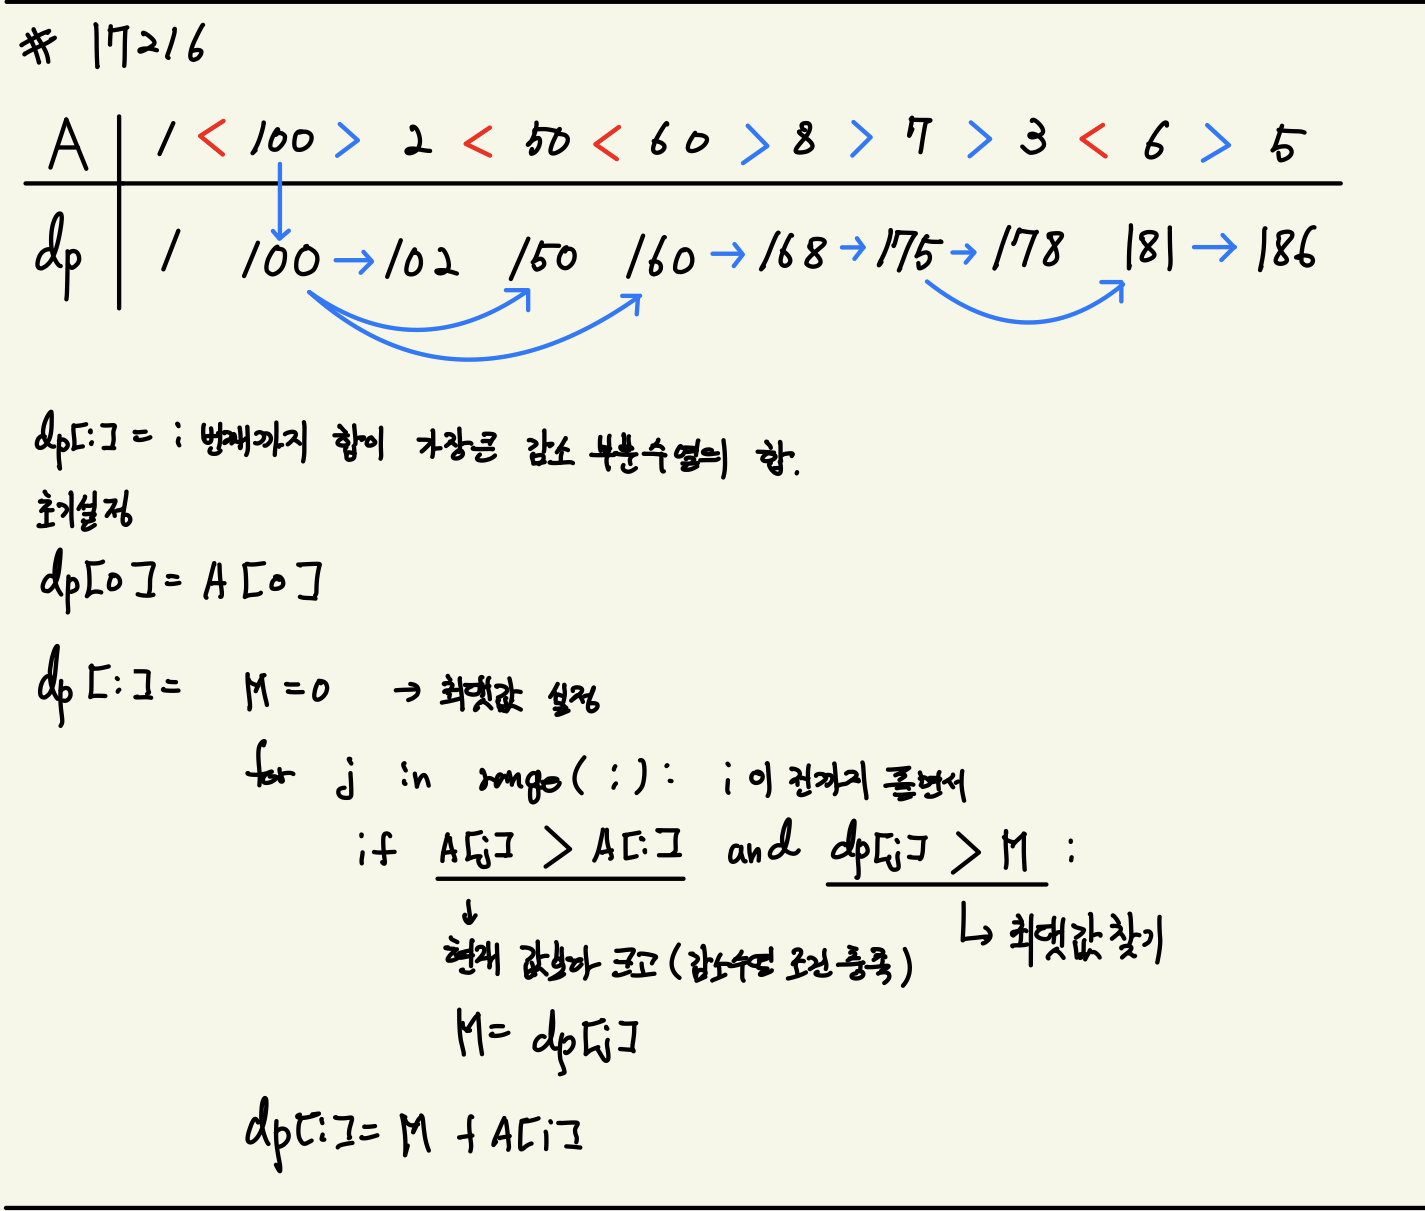 # 17216
A 1 < 100 > 2 < 50 < 60 > 8 > 7 > 3 < 6 > 5
dp 1 100 → 102 150 160 → 168 → 175 → 178 181 → 186
dp[i] = i 번째까지 합이 가장큰 감소 부분수열의 합.
초기설정
dp[0] = A[0]
dp[i] = M = 0 → 최댓값 설정
for j in range(i): i 이전까지 돌면서
if A[j] > A[i] and dp[j] > M :
↓ 현재 값보다 크고 (감소수열 조건 충족) ↳ 최댓값 찾기
M = dp[j]
dp[i] = M + A[i]